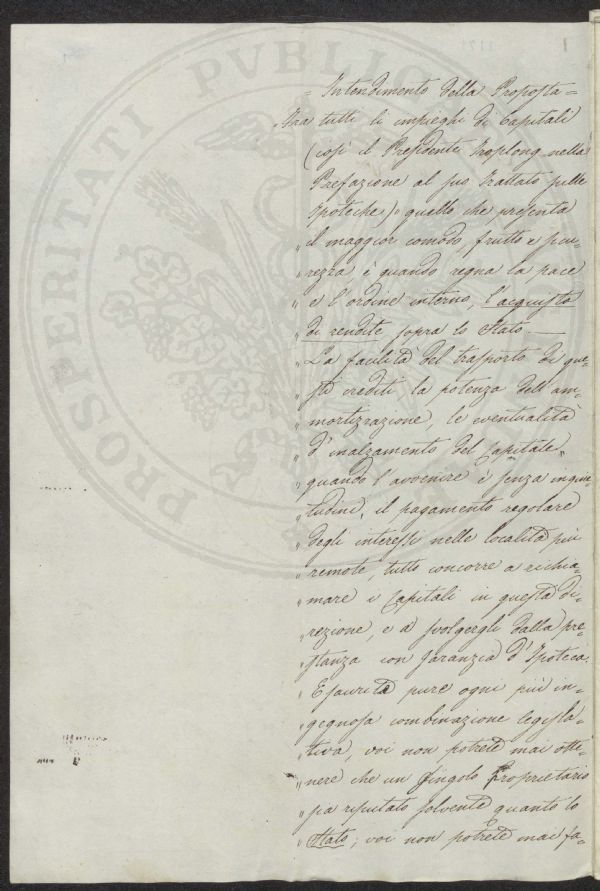 = Intendimento della Proposta =
„ Fra tutti li impieghi di Capitali
(così il Presidente Troplong nella
Prefazione al suo Trattato sulle
Ipoteche) „ quello che presenta
„ il maggior comodo, frutto e sicu-
„ rezza, è quando regna la pace
„ e l'ordine interno, l'acquisto
„ di rendite sopra lo Stato. —
„ La facilità del trasporto di que-
„ sti crediti la potenza dell'am-
„ mortizzazione, le eventualità
„ d'inalzamento del Capitale „
„ quando l'avvenire è senza inquie-
„ tudini, il pagamento regolare
„ degli interessi nelle località più
„ remote, tutto concorre a richia-
„ mare i Capitali in questa di-
„ rezione, e a svolgergli dalla pre-
„ stanza con garanzia d'Ipoteca.
„ Esaurita pure ogni più in-
„ gegnosa combinazione legisla-
„ tiva, voi non potrete mai otte-
„ nere che un singolo Proprietario
„ sia reputato solvente quanto lo
„ Stato; voi non potrete mai fa-
PROSPERITATI PVBLICAE